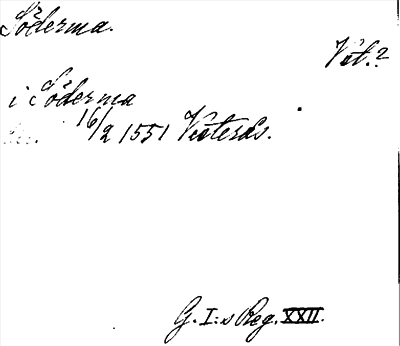 Söderma.
Vst.?
i Söderma
16/2 1551 Västerås.
G. I:s Reg. XXII.